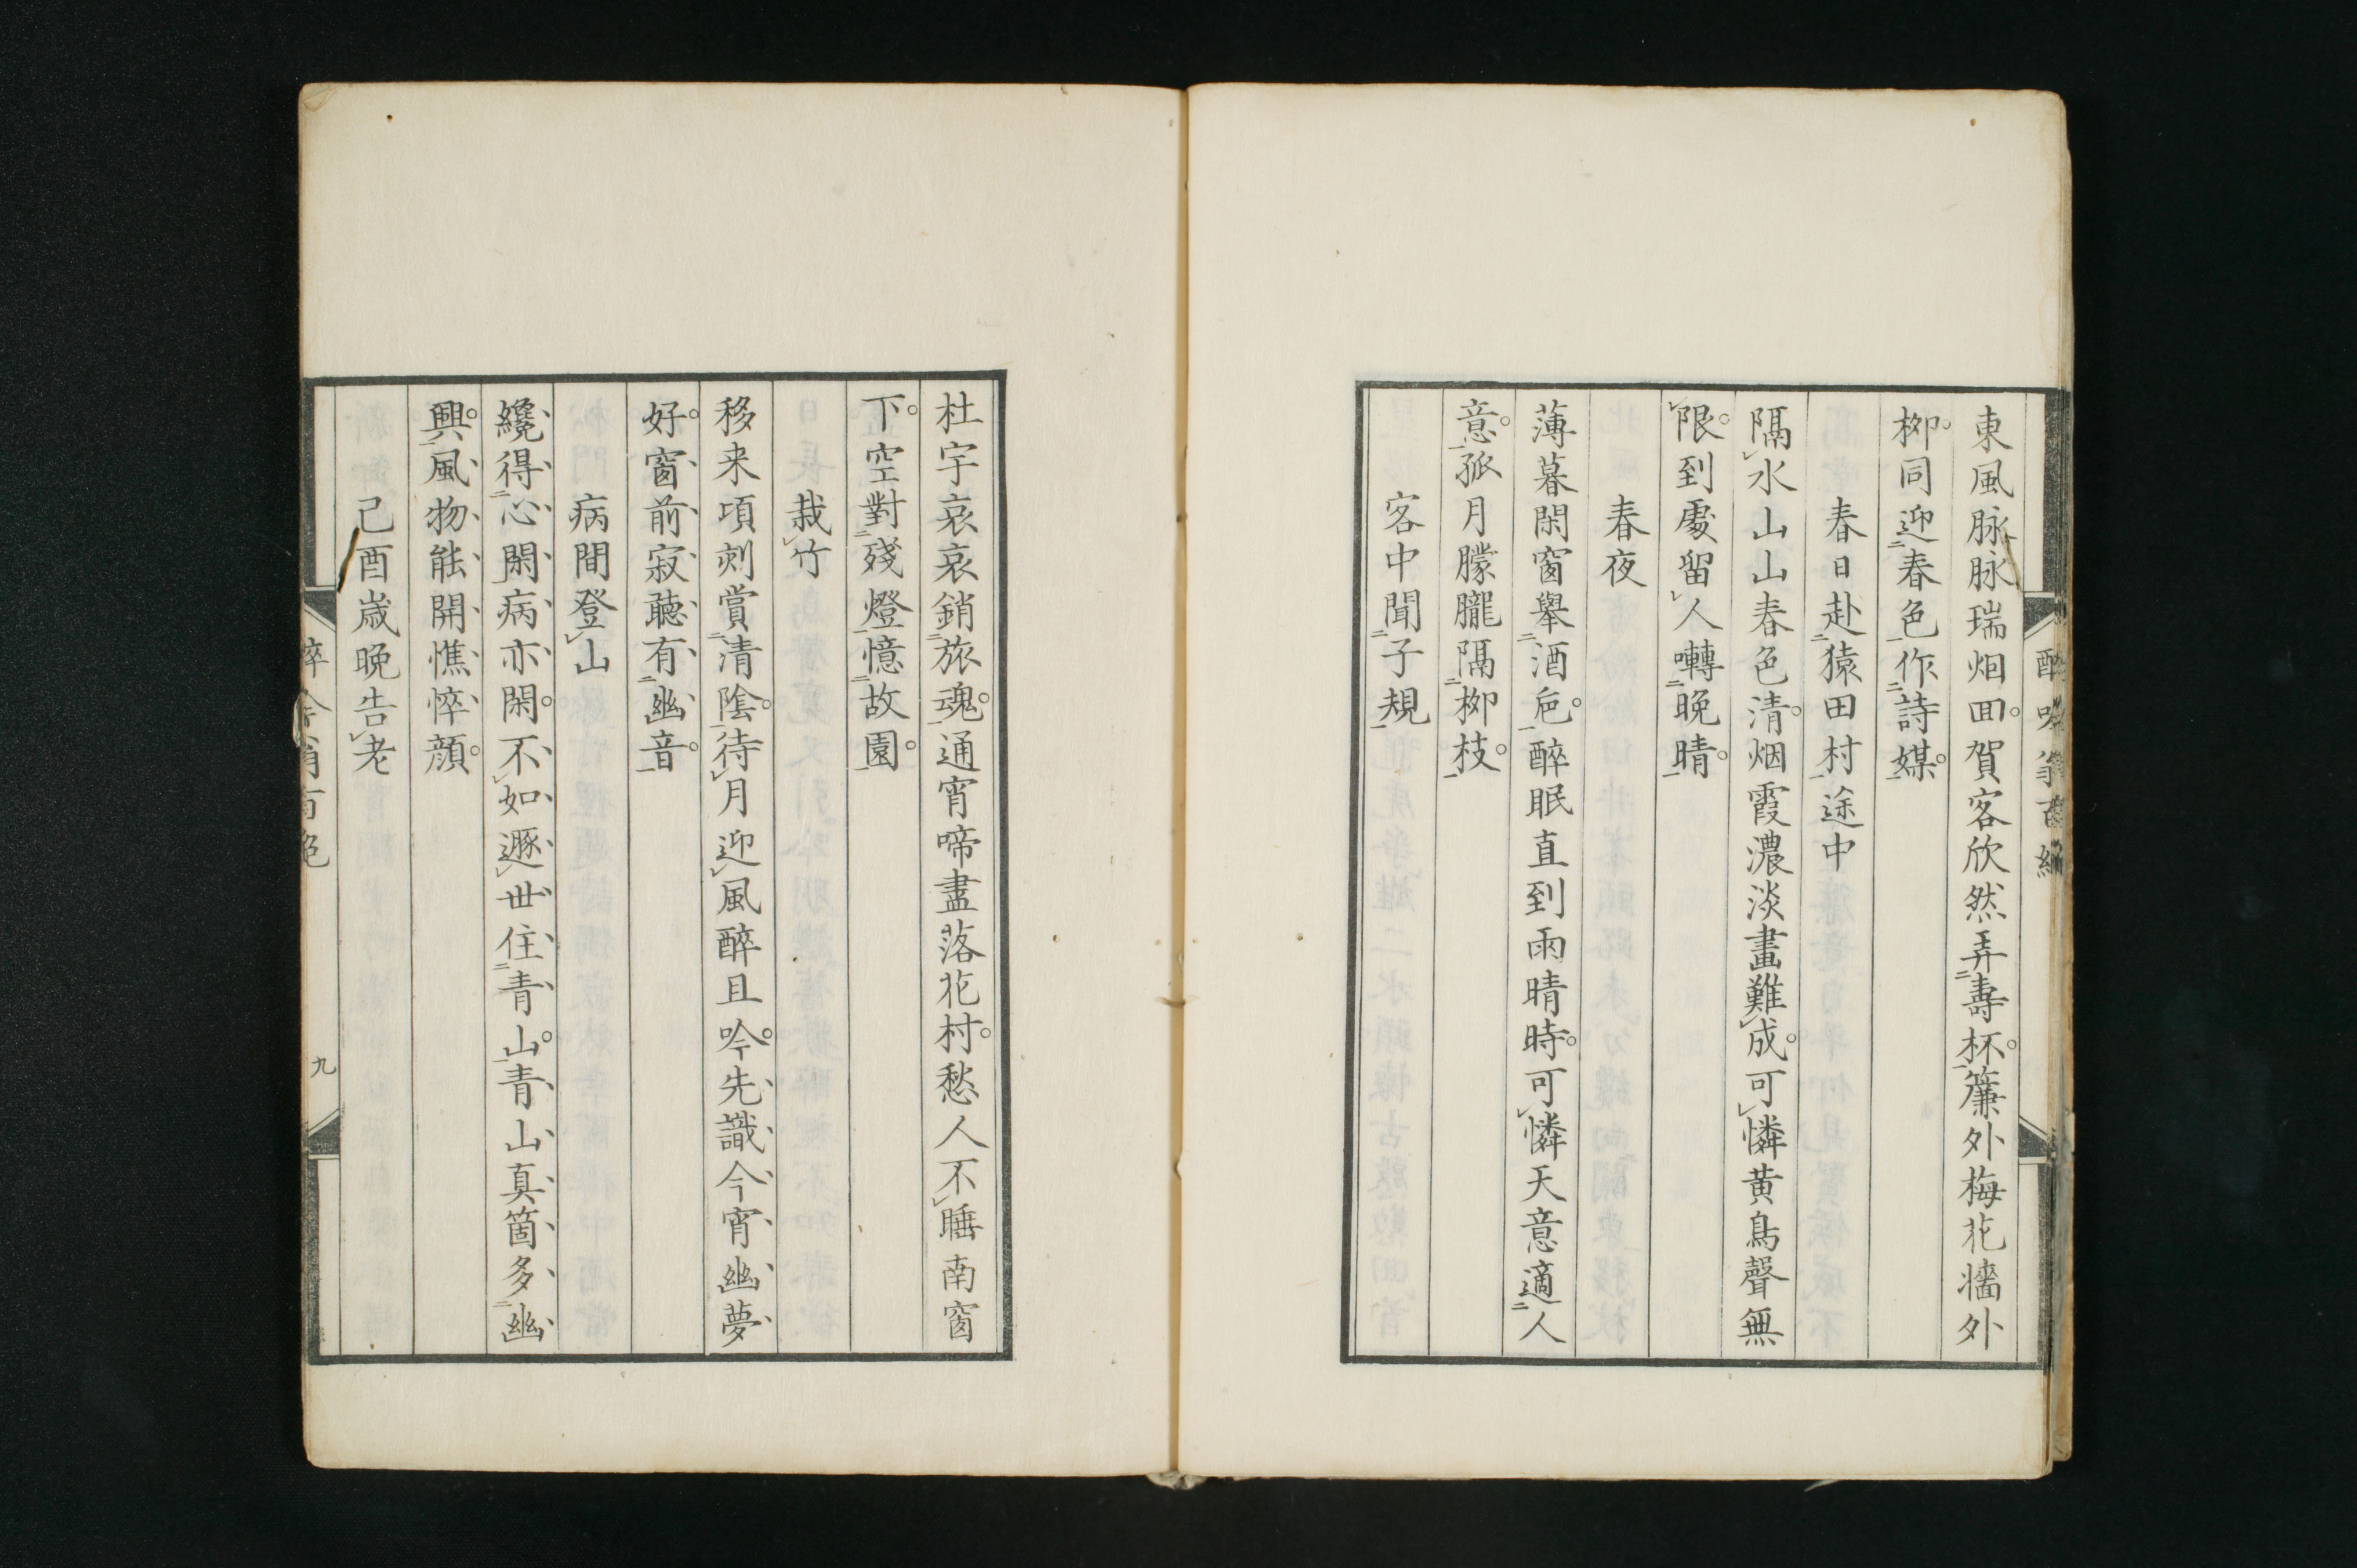 東風脉脉瑞烟回賀客欣然弄壽杯簾外梅花墻外
柳同迎春色作詩媒
春日赴猿田村途中
隔水山山春色清烟霞濃淡畫難成可憐黄鳥聲無
限到處留人囀晩晴
春夜
薄暮閑窗舉酒巵醉眠直到雨晴時可憐天意適人
意孤月朦朧隔柳枝
客中聞子規
杜宇哀哀銷旅魂通宵啼盡落花村愁人不睡南窗
下空對殘燈憶故園
栽竹
移来頃刻賞清陰待月迎風醉且吟先識今宵幽夢
好窗前寂聽有幽音
病間登山
纔得心閑病亦閑不如遯世住青山青山真箇多幽
興風物能開憔悴顔
己酉歳晩告老
九